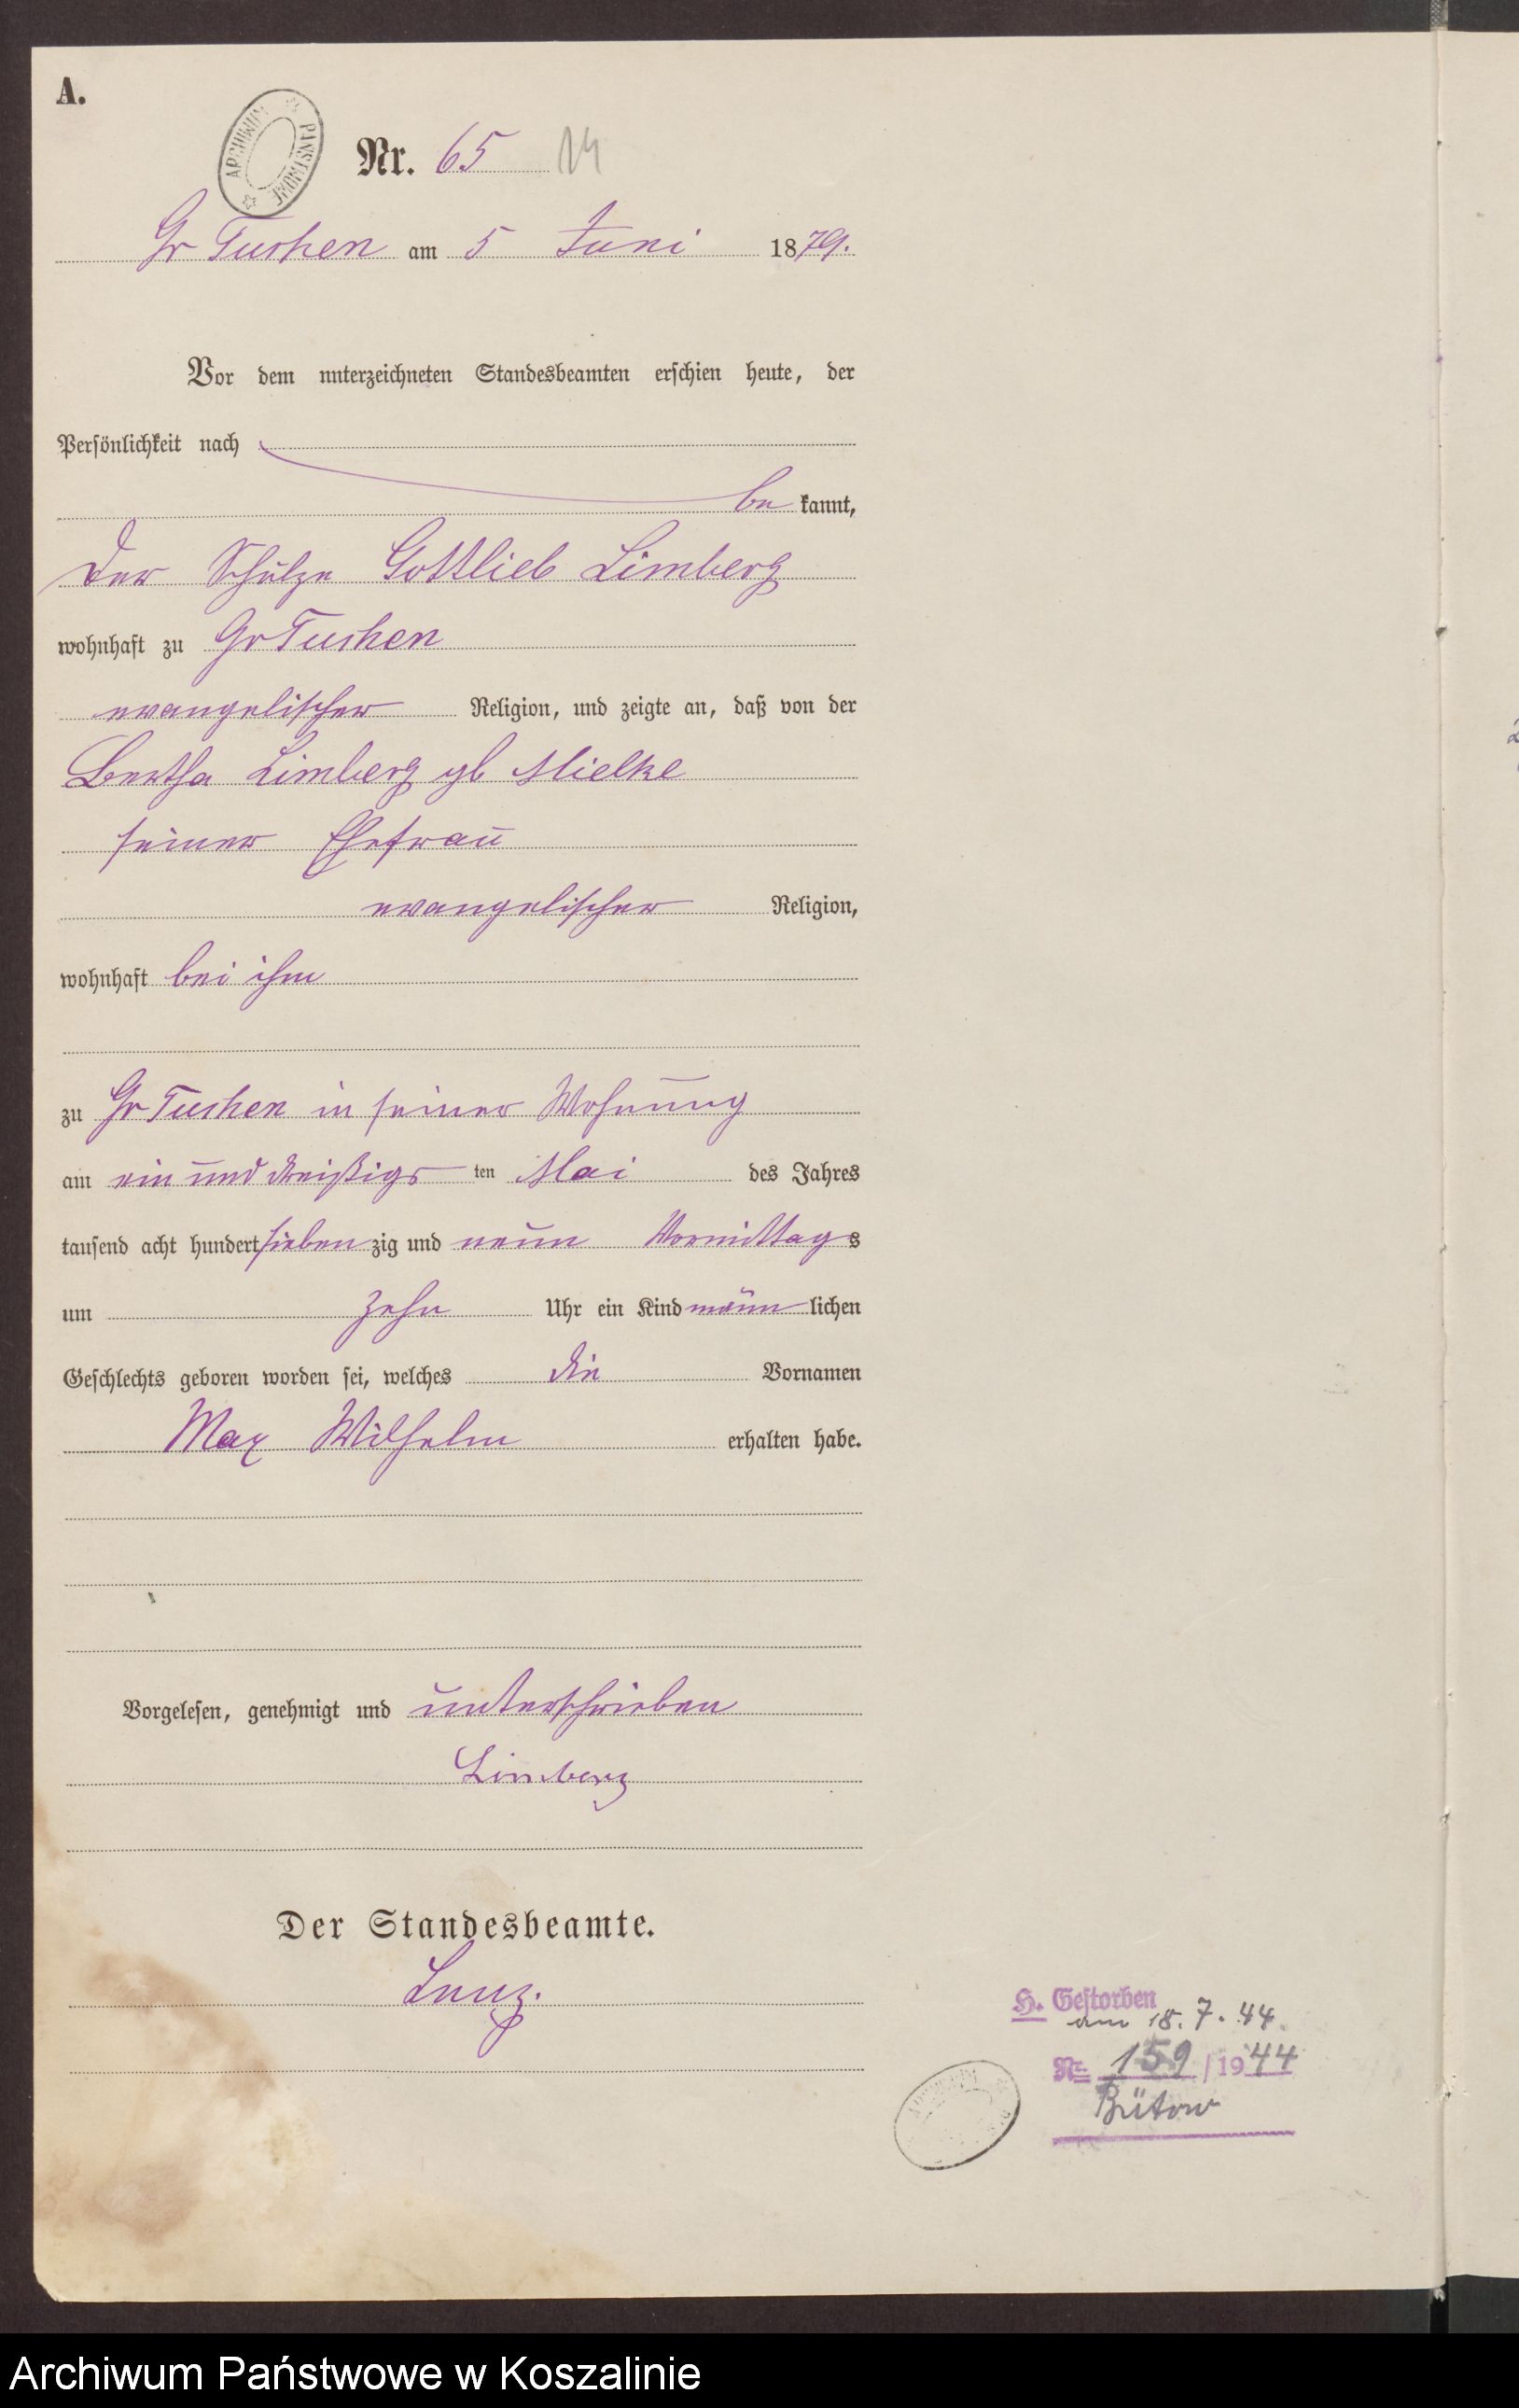 A.
ARCHIWUM PAŃSTWOWE
Nr. 65 14
Gr Tuchen am 5 Juni 1879.
Vor dem unterzeichneten Standesbeamten erschien heute, der
Persönlichkeit nach
be kannt,
der Schulze Gottlieb Limberg
wohnhaft zu Gr Tuchen
evangelischer Religion, und zeigte an, daß von der
Bertha Limberg gb Mielke
seiner Ehefrau
evangelischer Religion,
wohnhaft bei ihm
zu Gr Tuchen in seiner Wohnung
am ein und dreißigs ten Mai des Jahres
tausend acht hundert sieben zig und neun Vormittags
um zehn Uhr ein Kind männ lichen
Geschlechts geboren worden sei, welches die Vornamen
Max Wilhelm erhalten habe.
Vorgelesen, genehmigt und unterschrieben
Limberg
Der Standesbeamte.
H. Gestorben
am 18.7.44.
Nr. 159/1944
Bütow
Archiwum Państwowe w Koszalinie